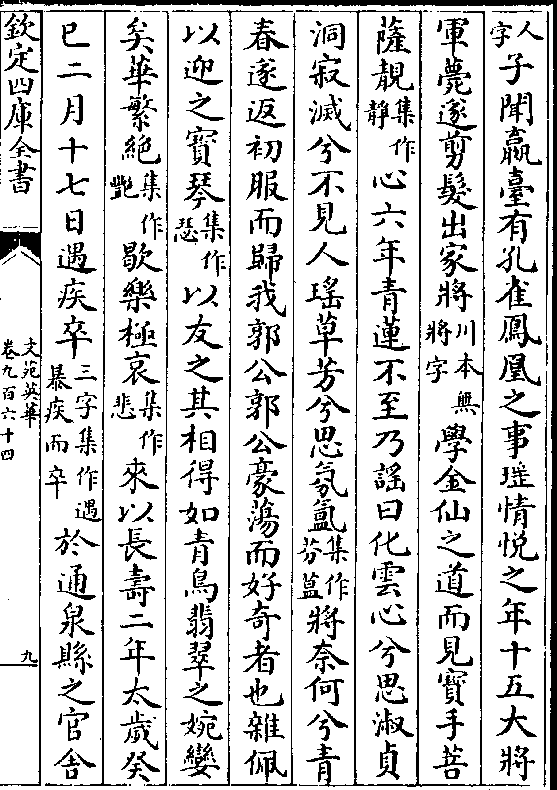 人字子聞嬴臺有孔雀鳳凰之事瑳情悅之年十五大將
軍薨遂剪髮出家將川本無將字學金仙之道而見寶手菩
薩靚集作靜心六年青蓮不至乃謠曰化雲心兮思淑貞
洞寂滅兮不見人瑤草芳兮思氛氳集作芬蒀將奈何兮青
春遂返初服而歸我郭公郭公豪蕩而好奇者也雜佩
以迎之寶琴集作瑟以友之其相得如青鳥翡翠之婉孌
矣華繁絶集作艷歇樂極哀集作悲來以長壽二年太歲癸
巳二月十七日遇疾卒三字集作遇暴疾而卒於通泉縣之官舍
欽定四庫全書
文苑英華
卷九百六十四
九